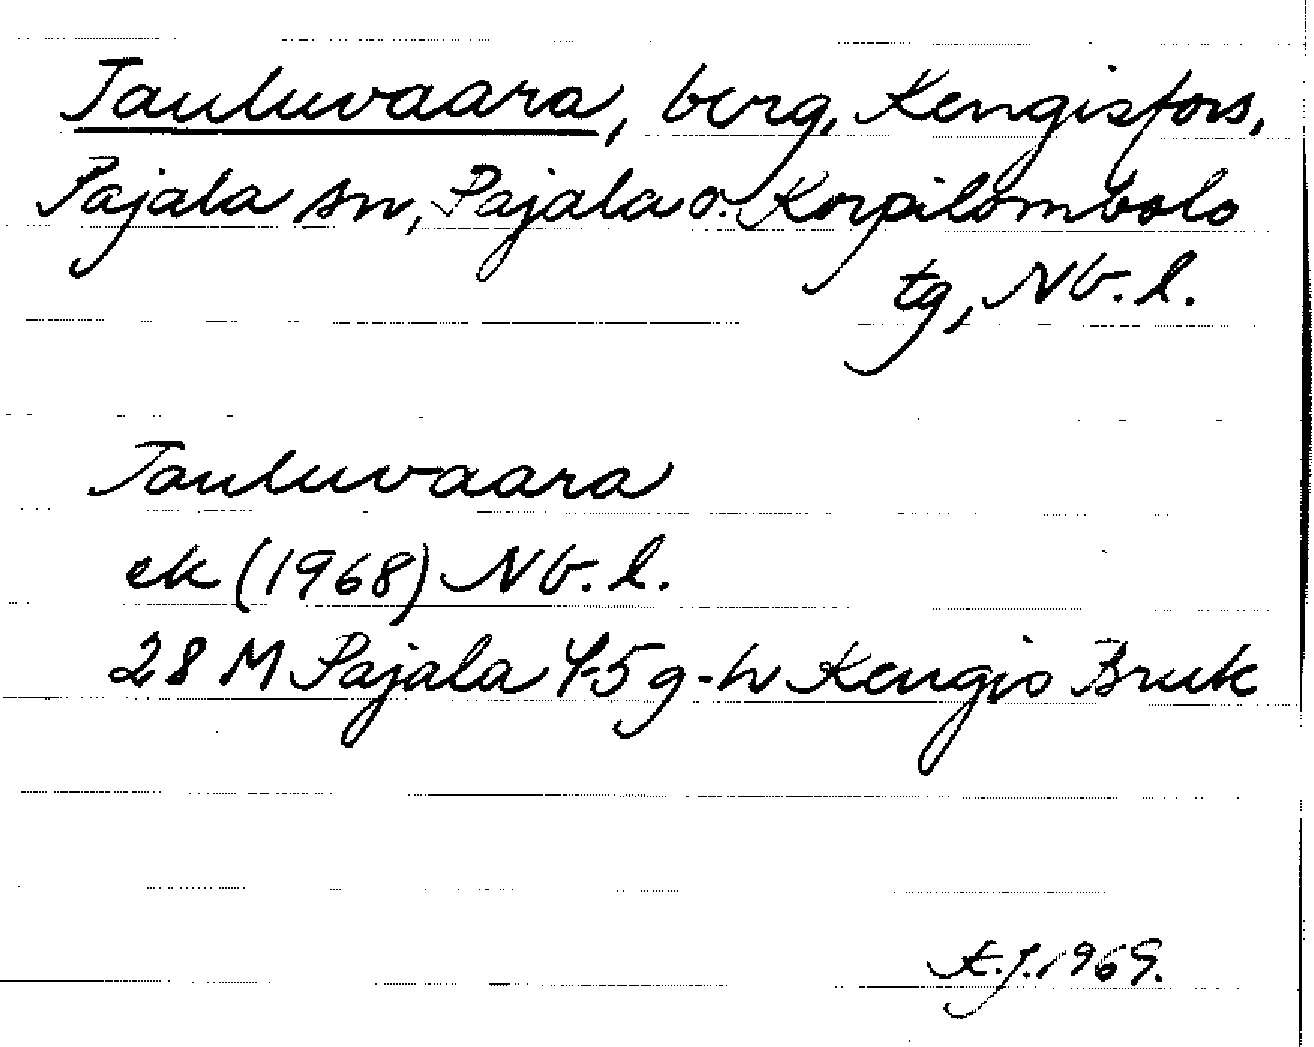 Tauluvaara, berg, Kengisfors,
Pajala sn, Pajala o. Korpilombolo
tg, Nb. l.
Tauluvaara
ek (1968) Nb. l.
28 M Pajala 4-5 g-h Kengis Bruk
A.J. 1969.